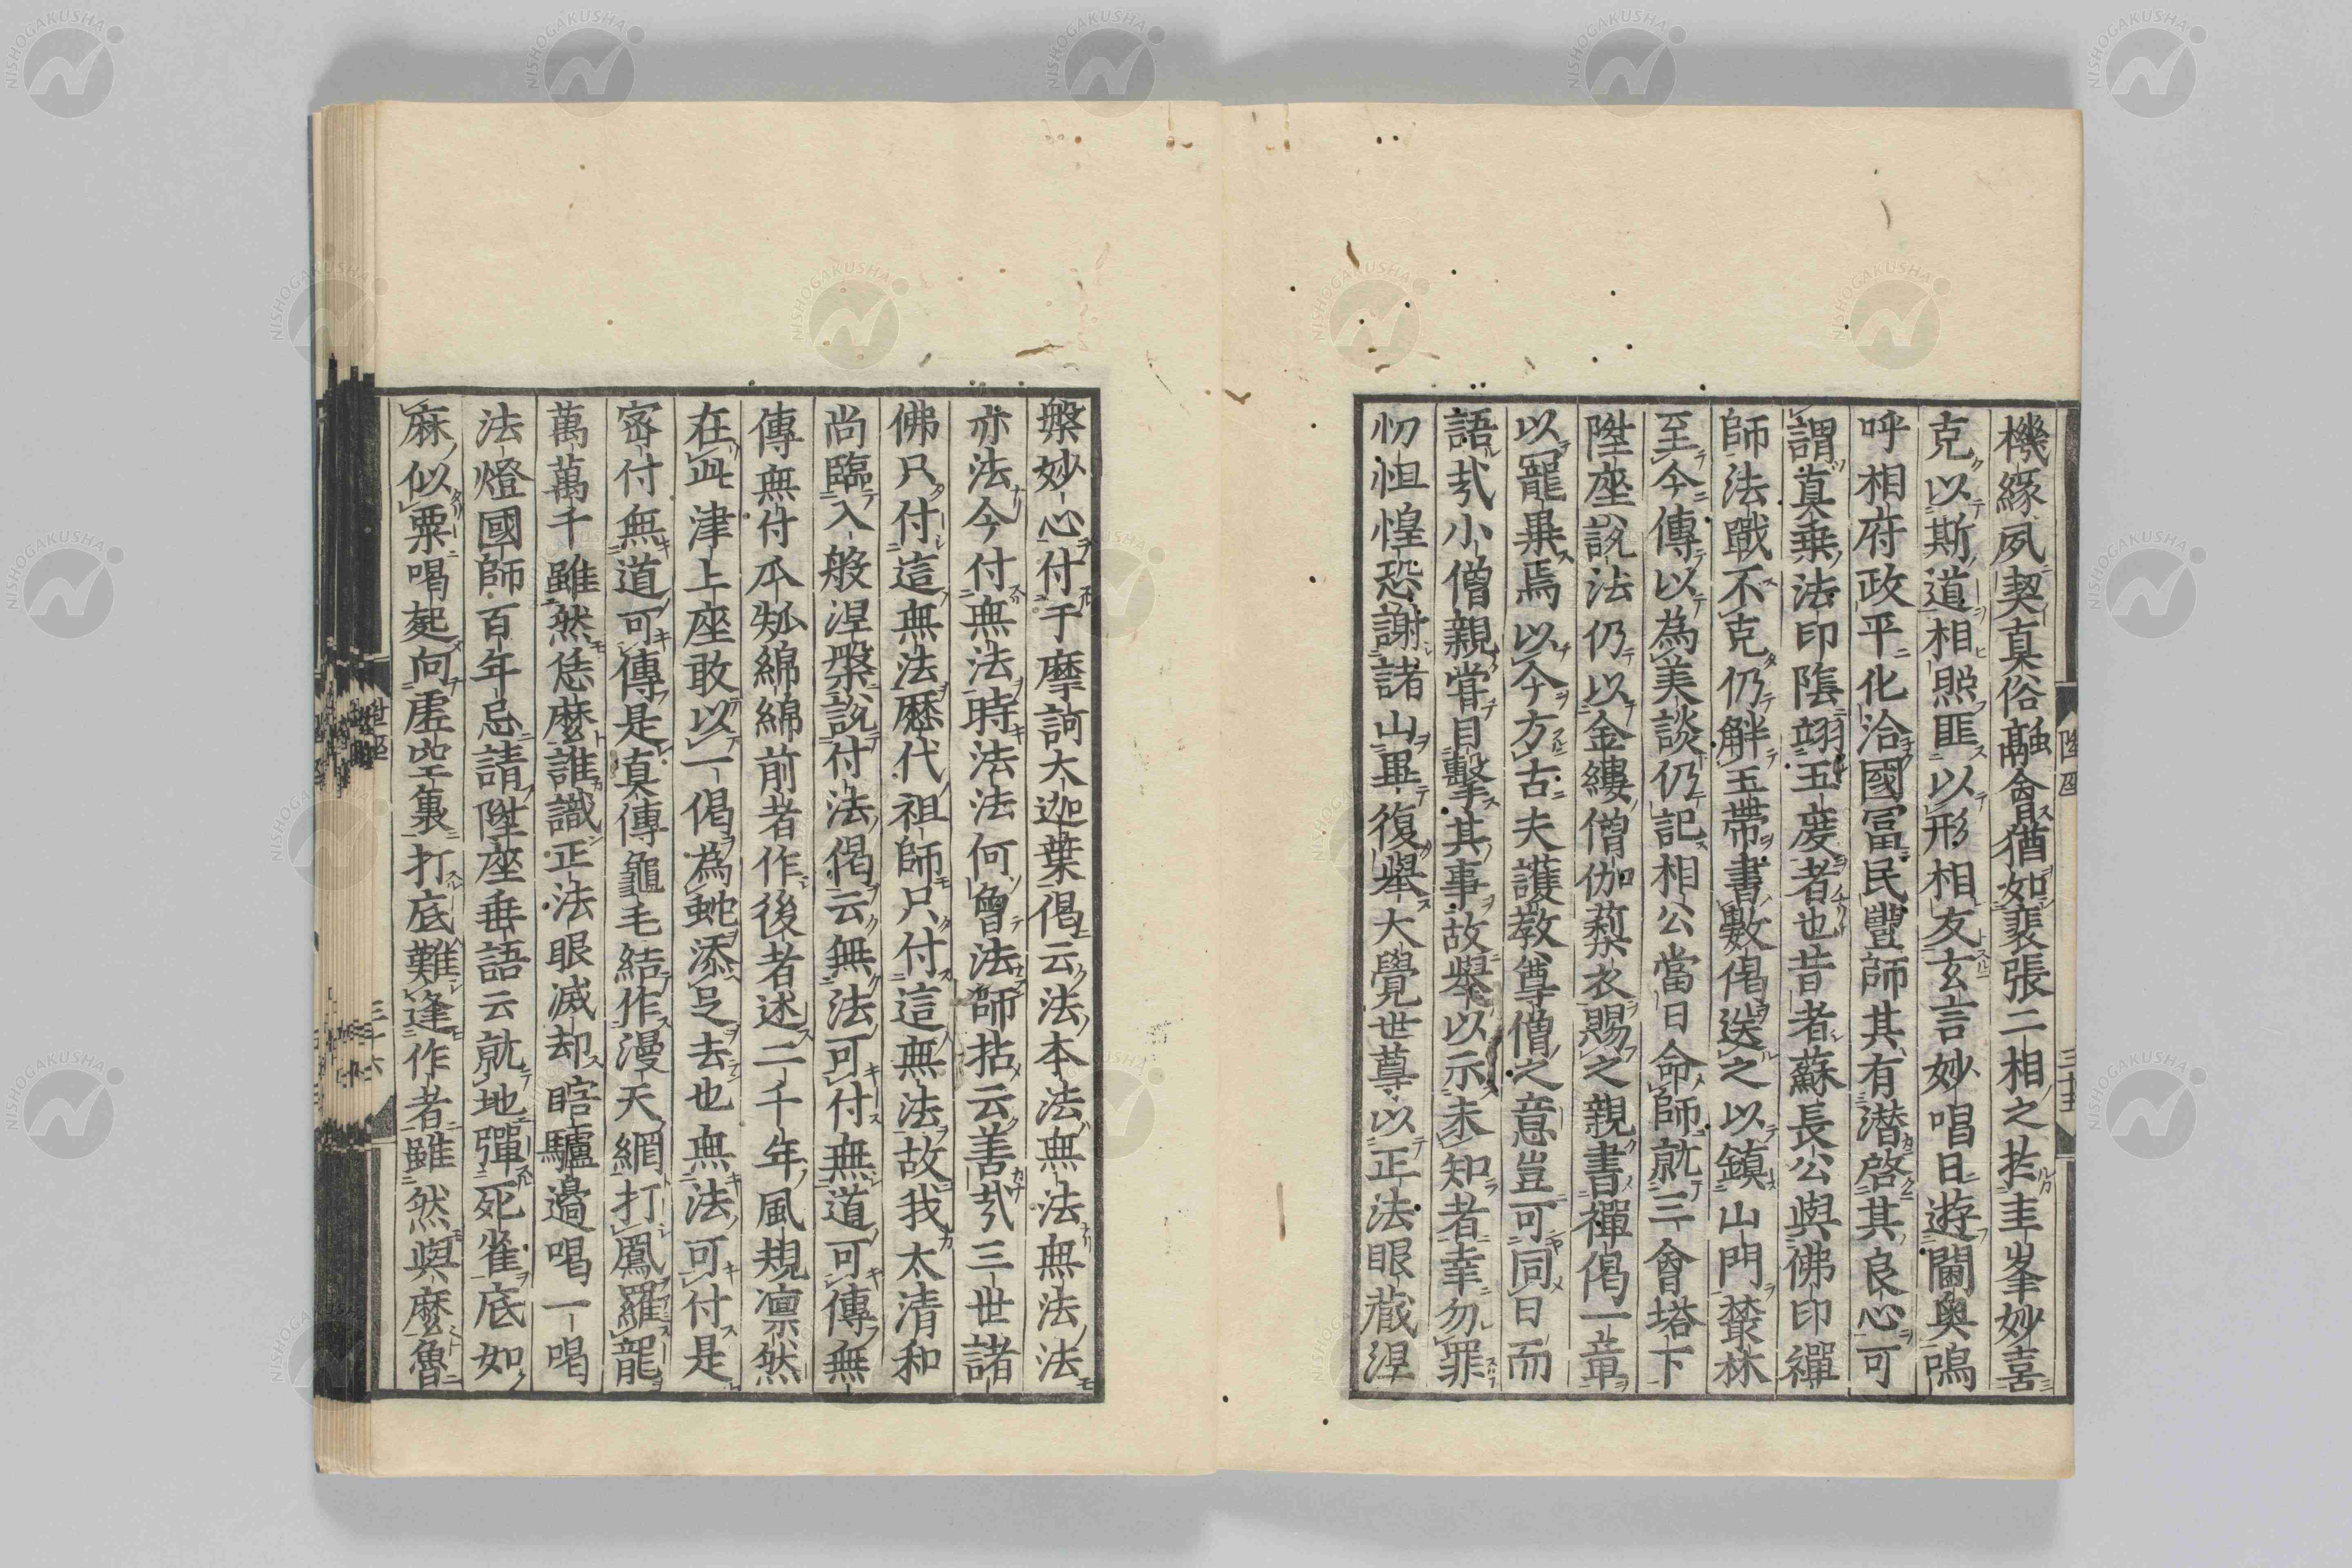 機緣夙契真俗融會猶如裴張二相之於圭峯妙喜
克以斯道相照匪以形相友玄言妙唱日遊閫奥嗚
呼相府政平化洽國富民豐師其有潜啓其良心可
謂真乗法印陰翊王度者也昔者蘇長公與佛印禪
師法戰不克仍觧玉帶書數偈送之以鎮山門叢林
至今傳以為美談仍記相公當日命師就三會塔下
陞座説法仍以金縷僧伽蔾衣賜之親書禪偈一章
以寵畢焉以今方古夫護教尊僧之意豈可同日而
語㢤小僧親甞目擊其事故舉以示未知者幸勿罪
忉怛惶恐謝諸山畢復舉大覺世尊以正法眼蔵涅
槃妙心付于摩訶大迦葉偈云法本法無法無法法
亦法今付無法時法法何曾法師拈云善㢤三世諸
佛只付這無法歴代祖師只付這無法故我太清和
尚臨入般涅槃説付法偈云無法可付無道可傳無
傳無付瓜瓞綿綿前者作後者述二千年風規凛然
在此津上座敢以一偈為虵添足去也無法可付是
宻付無道可傳是真傳龜毛結作漫天網打鳳羅龍
萬萬千雖然恁麽誰識正法眼滅却瞎驢邉喝一喝
法燈國師百年忌請陞座垂語云就地彈死雀底如
麻似粟喝起向虗空裏打底難逢作者雖然與麽魯